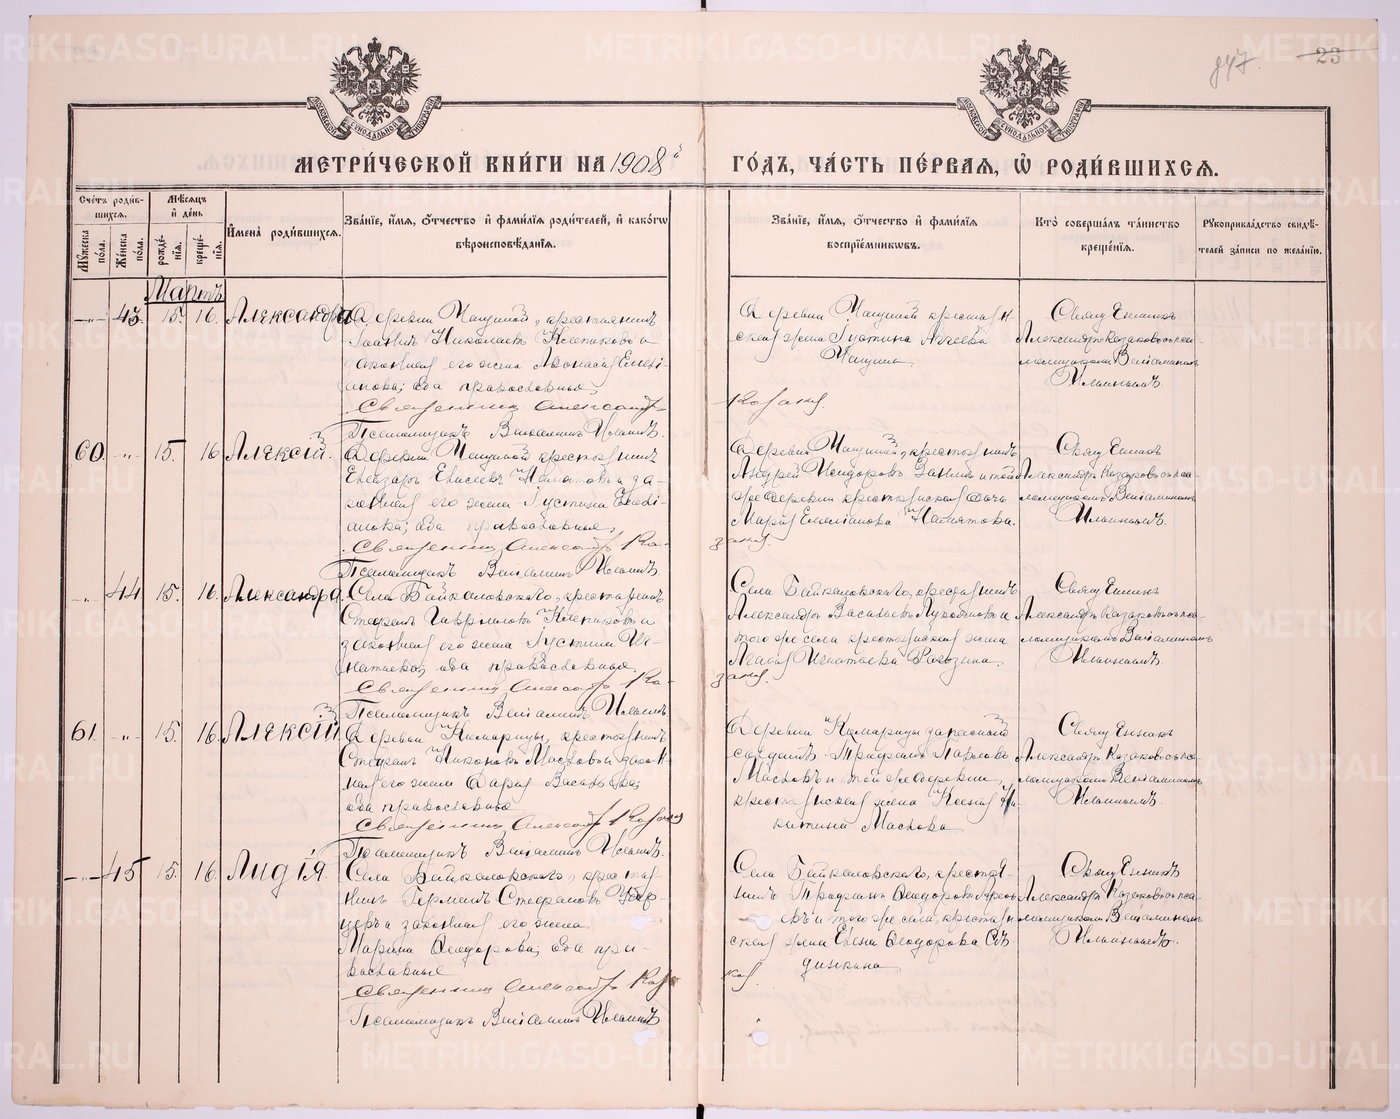 947.
23
МОСКОВСКОЙ СѴНОДАЛЬНОЙ ТИПОГРАФІИ
МОСКОВСКОЙ СѴНОДАЛЬНОЙ ТИПОГРАФІИ
МЕТРИ́ЧЕСКОЙ КНИ́ГИ НА 1908й ГО́ДЪ, ЧА́СТЬ ПЕ́РВАЯ, Ѽ РОДИ́ВШИХСЯ.
Сче́тъ роди́вшихся.
Му́жеска по́ла.
Же́нска по́ла.
Мѣ́сяцъ и҆ де́нь
рожде́нїѧ.
креще́нїѧ.
И҆мена̀ роди́вшихся.
Зва́нїе, и҆́мя, ѻ҆́тчество и҆ фами́лїя роди́телей, и҆ како́гѡ
вѣроисповѣ́данїя.
Зва́нїе, и҆́мя, ѻ҆́тчество и҆ фами́лїя
воспрїе́мникѡвъ.
Кто̀ соверша́лъ та́инство
креще́нїя.
Рꙋкоприкла́дство свидѣ́-
телей за́писи по жела́нїю.
Мартъ
—"— 43. 15. 16. Александра
Деревни Чащиной, крестьянинъ
Іоаннъ Николаевъ и
законная его жена Афонасія Емелі-
анова; оба православные
Священникъ Александръ
Казанц.
Псаломщикъ Веніаминъ Ильинъ.
Деревни Чащиной крестьян-
ская жена Іустина Агѣева
Чащина
Священникъ
Александръ Казаковъ съ пса-
ломщикомъ Веніаминомъ
Ильинымъ.
60. -"- 15. 16 Алексій.
Деревни Чащиной крестьянинъ
Елеазаръ Елисеевъ и за-
конная его жена Іустина
анова; оба православные,
Священникъ Александръ Ка-
занц.
Псаломщикъ Веніаминъ Ильинъ.
Деревни Чащиной, крестьянинъ
Андрей Исидоровъ и той
же деревни крестьянская дочь
Марія Емеліанова
Священникъ
Александръ Казаковъ съ пса-
ломщикомъ Веніаминомъ
Ильинымъ.
-"- 44 15. 16. Александра.
Села Байкаловскаго, крестьянинъ
Стефанъ Гавриловъ Клепиковъ и
законная его жена Іустина Иг-
натіева; оба православные.
Священникъ Александръ Ка-
занц.
Псаломщикъ Веніаминъ Ильинъ
Села Байкаловскаго, крестьянинъ
Александръ Васильевъ и
того же села крестьянская жена
Агафія Игнатіева Рогозина.
Священникъ
Александръ Казаковъ съ пса-
ломщикомъ Веніаминомъ
Ильинымъ.
61. -"- 15. 16. Алексій.
Деревни Комарицы, крестьянинъ
Стефанъ Никоновъ Масловъ и закон-
ная его жена Дарія Васильева;
оба православные
Священникъ Александръ
Псаломщикъ Веніаминъ Ильинъ.
Деревни Комарицы запасный
солдатъ Трофимъ Павловъ
Масловъ и той же деревни
крестьянская жена Ксенія Ни-
китина Маслова
Священникъ
Александръ Казаковъ съ пса-
ломщикомъ Веніаминомъ
Ильинымъ.
—"— 45 15. 16. Лидія.
Села Байкаловскаго, крестья-
нинъ Германъ Стефановъ
и законная его жена
Марина Ѳеодорова; оба пра-
вославные
Священникъ Александръ
Псаломщикъ Веніаминъ Ильинъ
Села Байкаловскаго, крестья-
нинъ Трофимъ Ѳеодоровъ
и того же села, крестьян-
ская жена Елена Ѳеодорова
Священникъ
Александръ Казаковъ съ пса-
ломщикомъ Веніаминомъ
Ильинымъ.
METRIKI.GASO-URAL.RU